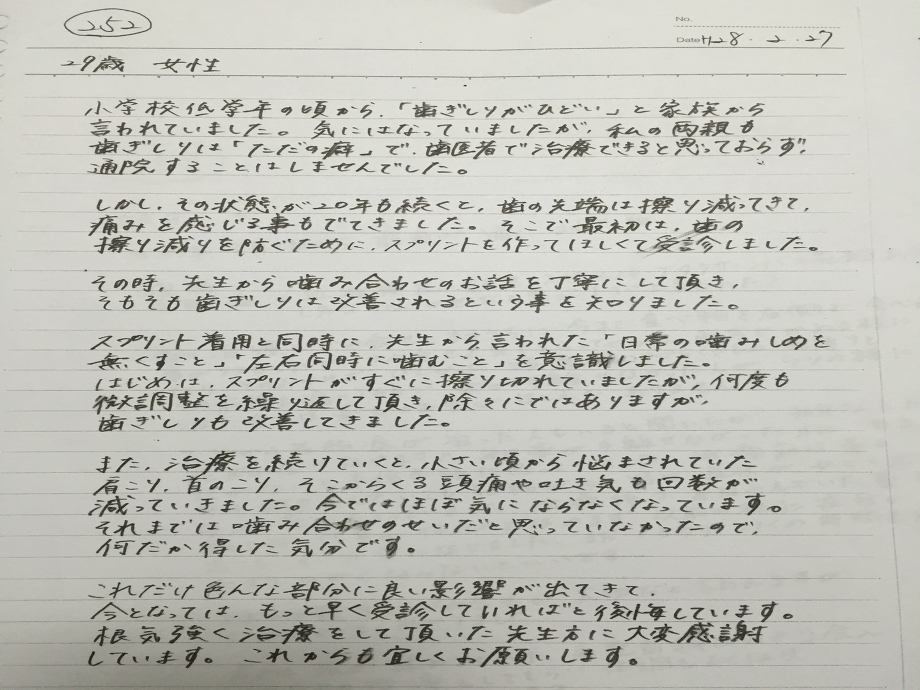 252
No.
Date H28・2・27
29歳 女性
小学校低学年の頃から、「歯ぎしりがひどい」と家族から
言われていました。気にはなっていましたが、私の両親も
歯ぎしりは「ただの癖」で、歯医者で治療できると思っておらず、
通院することはしませんでした。
しかし、その状態が20年も続くと、歯の先端は擦り減ってきて、
痛みを感じる事もでてきました。そこで最初は、歯の
擦り減りを防ぐために、スプリントを作ってほしくて受診しました。
その時、先生から噛み合わせのお話を丁寧にして頂き、
そもそも歯ぎしりは改善されるという事を知りました。
スプリント着用と同時に、先生から言われた「日常の噛みしめを
無くすこと」「左右同時に噛むこと」を意識しました。
はじめは、スプリントがすぐに擦り切れていましたが、何度も
微調整を繰り返して頂き、除々にではありますが、
歯ぎしりも改善してきました。
また、治療を続けていくと、小さい頃から悩まされていた
肩こり、首のこり、そこからくる頭痛や吐き気も回数が
減っていきました。今ではほぼ気にならなくなっています。
それまでは噛み合わせのせいだと思っていなかったので、
何だか得した気分です。
これだけ色んな部分に良い影響が出てきて、
今となっては、もっと早く受診していればと後悔しています。
根気強く治療をして頂いた先生方に大変感謝
しています。これからも宜しくお願いします。